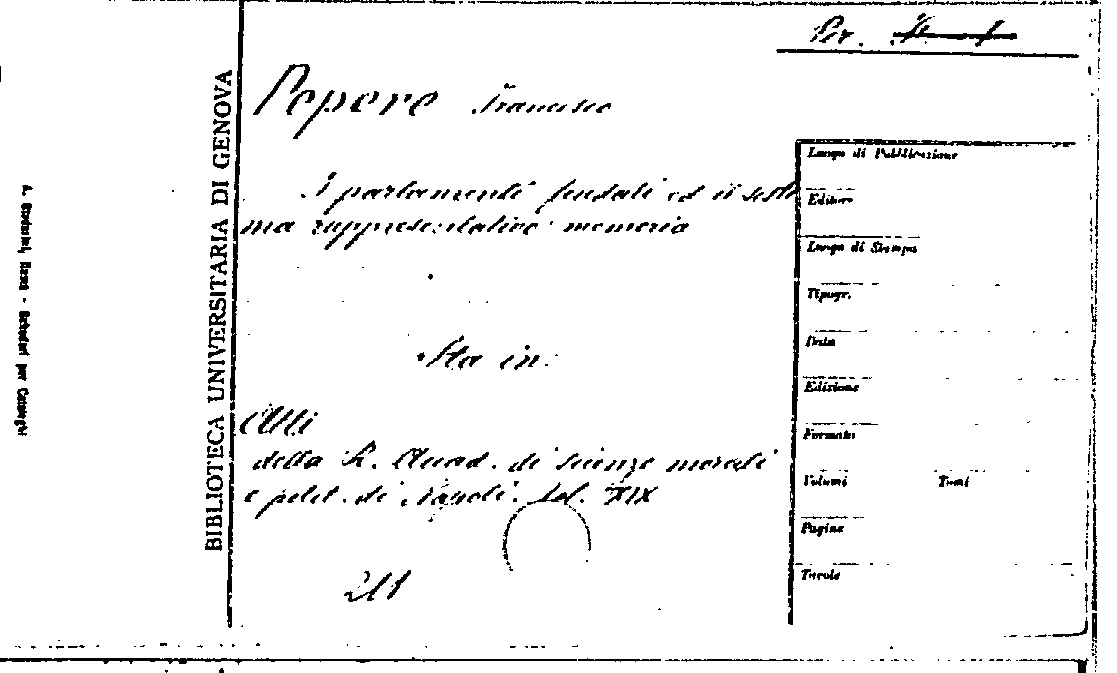 Per.
Pepere Francesco
I parlamenti feudali ed il siste
ma rappresentativo: memoria
Sta in:
Atti
della R. Accad. di scienze morali
e polit. di Napoli. Vol. XIX
211
BIBLIOTECA UNIVERSITARIA DI GENOVA
Luogo di Pubblicazione
Editore
Luogo di Stampa
Tipogr.
Data
Edizione
Formato
Volumi Tomi
Pagine
Tavole
Roma - Schedari per Cataloghi